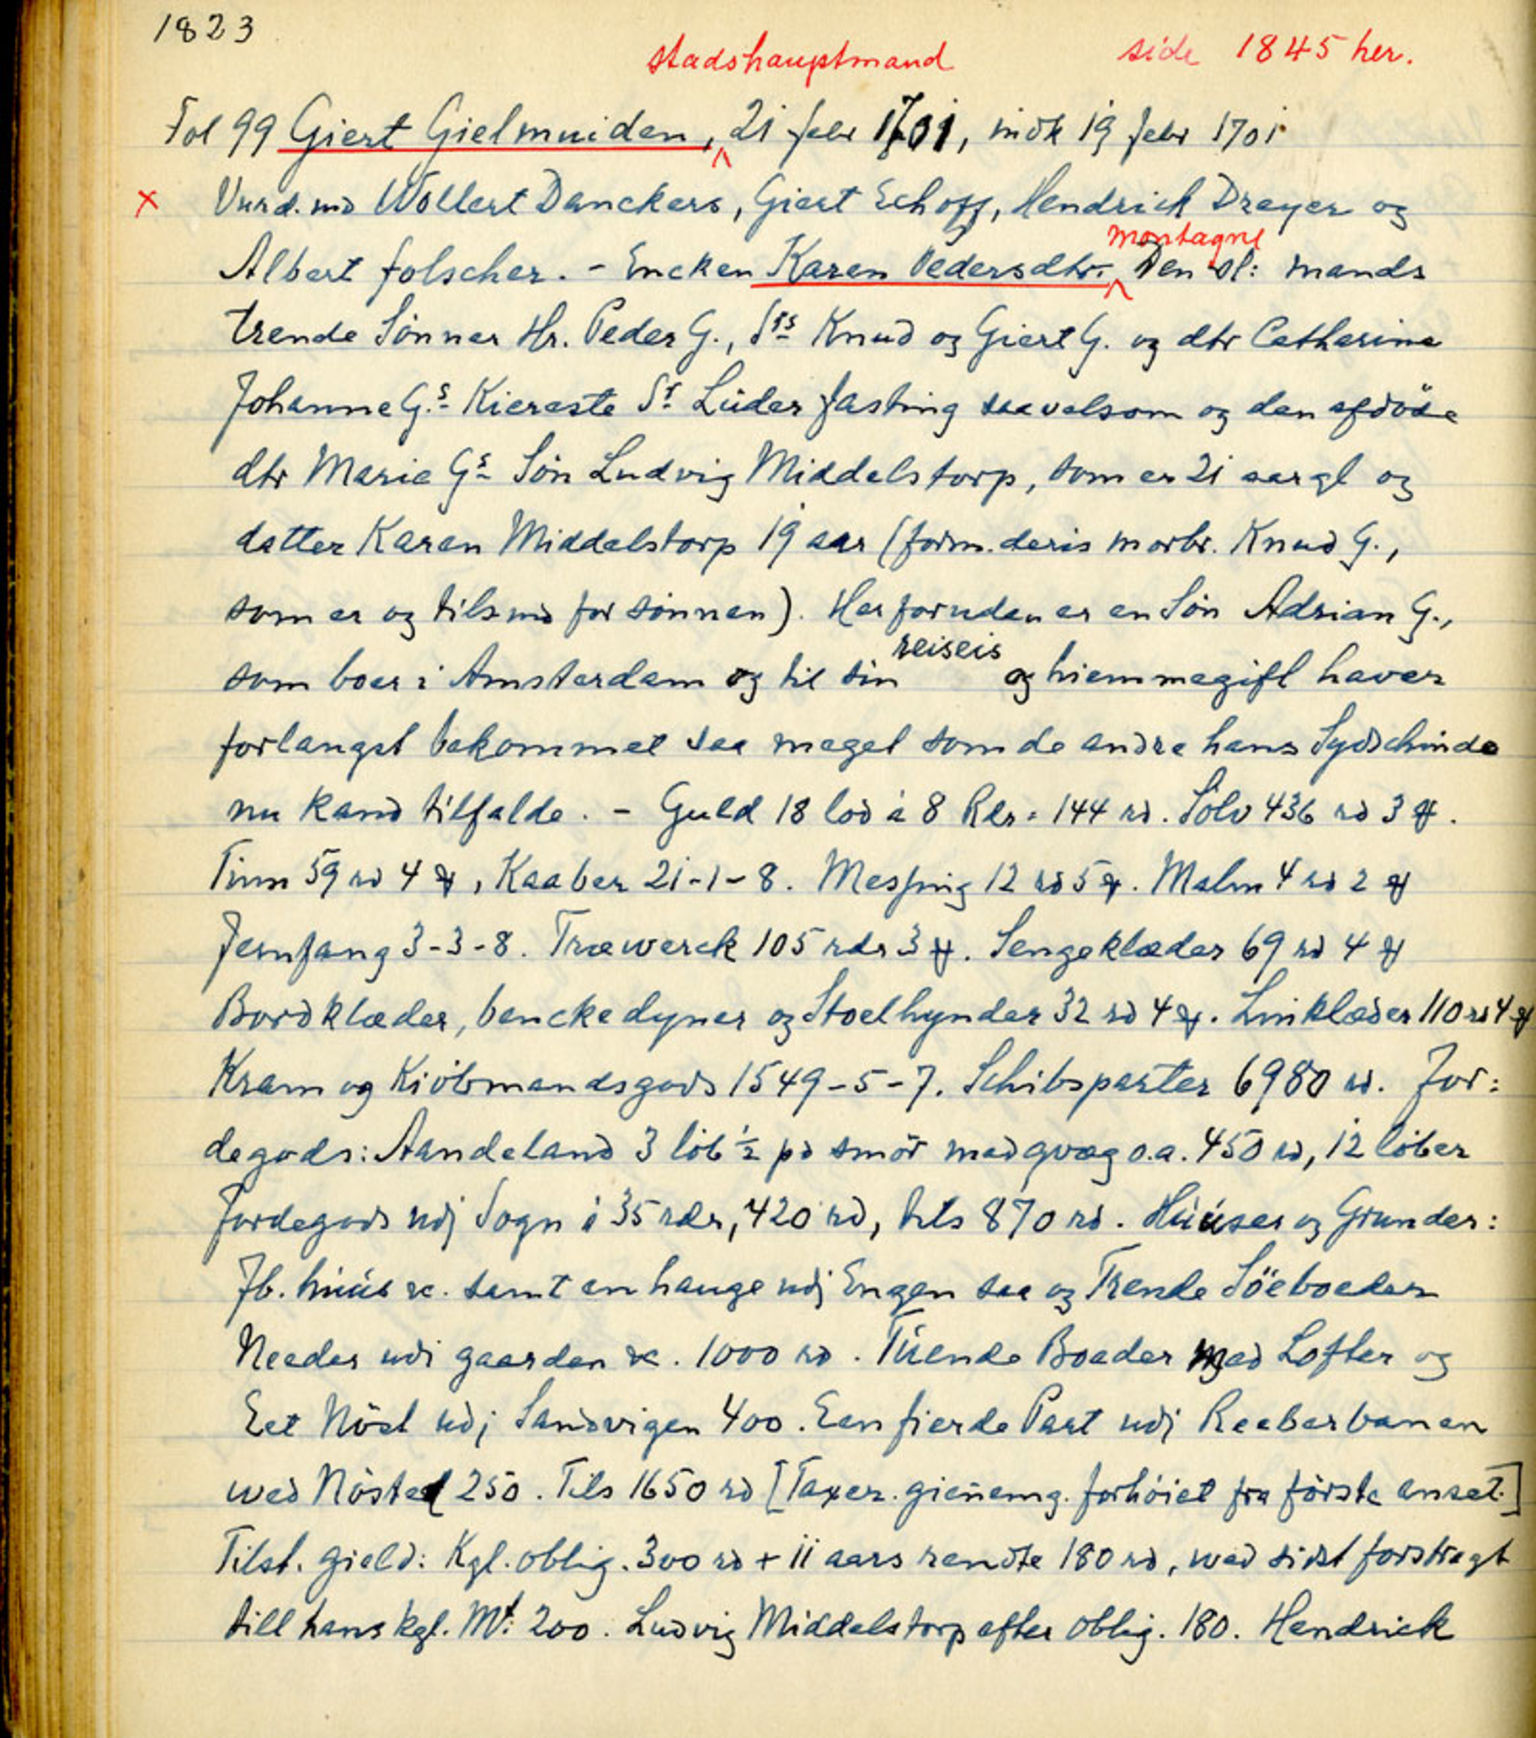 1823
stadshauptmand side 1845 her.
Fol 99 Giert Gielmuiden, 21 febr 1701, indk 19 febr 1701
x Vurd. md Wollert Danckers, Giert Echoff, Hendrich Dreyer og
montagne
Albert folscher. - Encken Karen Pedersdtr. Den Sl: mands
trende Sønner Hr. Peder G., Srs Knud og Giert G. og dtr Catharina
Johanne G.s Kiereste Sr Lüder Fasting saavelsom og den afdöde
dtr Marie Gs Søn Ludvig Middelstorp, som er 21 aar gl og
datter Karen Middelstorp 19 aar (form. deris morbr. Knud G.,
som er og tilsmd for sønnen). Her foruden er en Søn Adrian G.,
reiseis
som boer i Amsterdam og til sin og hiemmegift haver
forlangst bekommet saa meget som de andre hans Sydschinde
nu kand tilfalde. - Guld 18 lod à 8 Rdr = 144 rd. Sølv 436 rd 3 ꝟ.
Tinn 59 rd 4 ꝟ, Kaaber 21-1-8. Messing 12 rd 5 ꝟ. Malm 4 rd 2 ꝟ
Jernfang 3-3-8. Træwerck 105 rdr 3 ꝟ. Sengeklæder 69 rd 4 ꝟ
Bordklæder, benckedyner og Stoelhynder 32 rd 4 ꝟ. Linklæder 110 rd 4 ꝟ
Kram og Kiöbmandsgods 1549-5-7. Schibsparter 6980 rd. Jor:
degods: Aandeland 3 löb ½ pd smör med qvæg o.a. 450 rd, 12 löber
Jordegods udj Sogn à 35 rdr, 420 rd, tils 870 rd. Huuser og Grunder:
Ib. huus &c. samt en hauge udj Engen saa og Trende Söeboeder
Neder udi gaarden &c. 1000 rd. Tuende Boeder med Lofter og
Eet Nöst udj Sandvigen 400. Een fierde Part udj Reeberbanen
wed Nöstet 250. Tils 1650 rd [Taxer. gienemg. forhöiet fra förste anset.]
Tilst. gield: Kgl. oblig. 300 rd + 11 aars rendte 180 rd, wed sidst forstragt
till hans kgl. Mt: 200. Ludvig Middelstorp efter oblig. 180. Hendrick